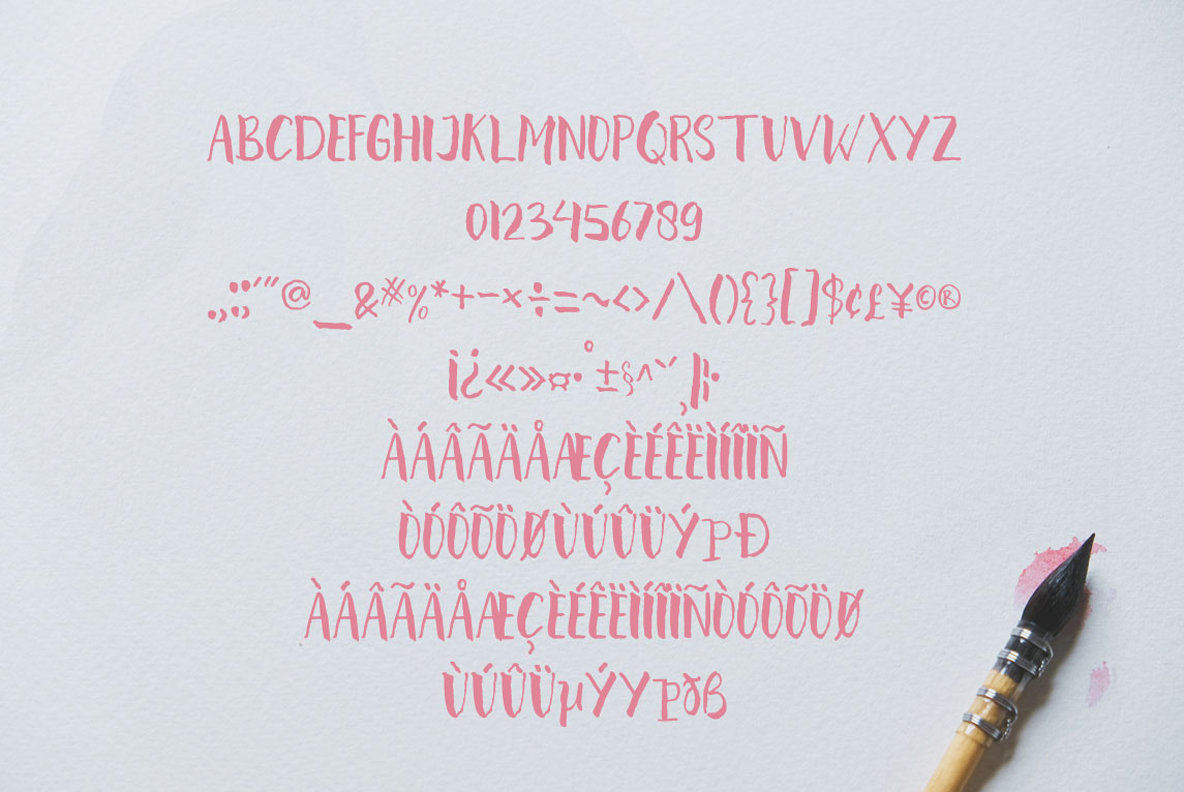 ABCDEFGHIJKLMNOPQRSTUVWXYZ
0123456789
.,:;'"@_&#%*+-×÷=~<>/\(){}[]$¢£¥©®
¡¿«»¤•°±§^`´¸|¦·
ÀÁÂÃÄÅÆÇÈÉÊËÌÍÎÏÑ
ÒÓÔÕÖØÙÚÛÜÝÞÐ
ÀÁÂÃÄÅÆÇÈÉÊËÌÍÎÏÑÒÓÔÕÖØ
ÙÚÛÜµÝYÞðß